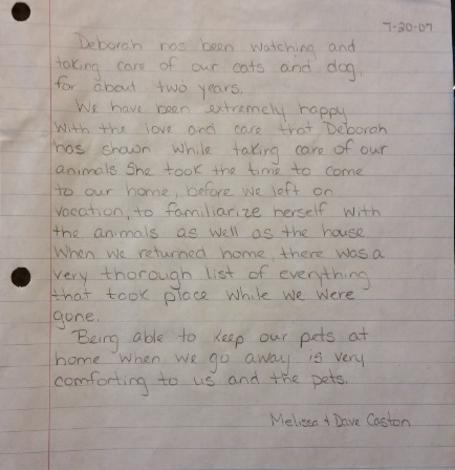 7-20-07
Deborah has been watching and
taking care of our cats and dog,
for about two years.
We have been extremely happy
with the love and care that Deborah
has shown while taking care of our
animals. She took the time to come
to our home, before we left on
vacation, to familiarize herself with
the animals as well as the house.
When we returned home, there was a
very thorough list of everything
that took place while we were
gone.
Being able to keep our pets at
home when we go away is very
comforting to us and the pets.
Melissa + Dave Caston